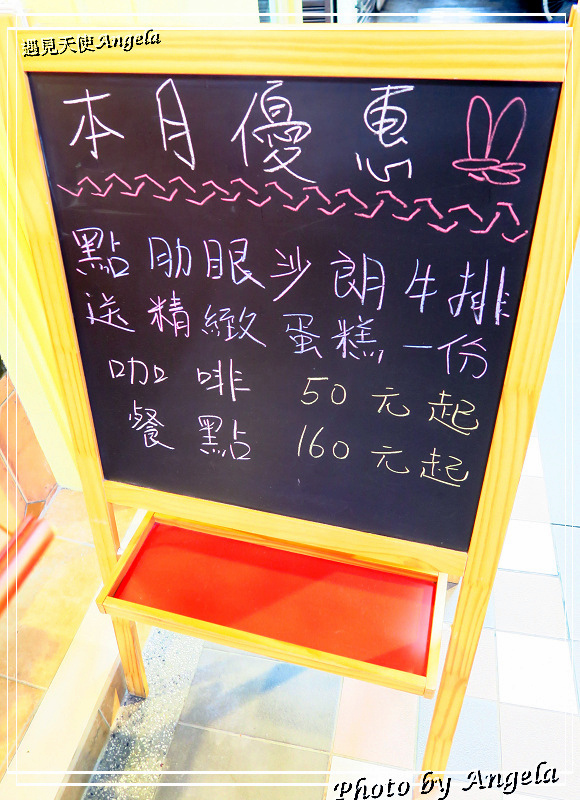 遇見天使Angela
本月優惠
點肋眼沙朗牛排
送精緻蛋糕一份
咖啡 50元起
餐點 160元起
Photo by Angela